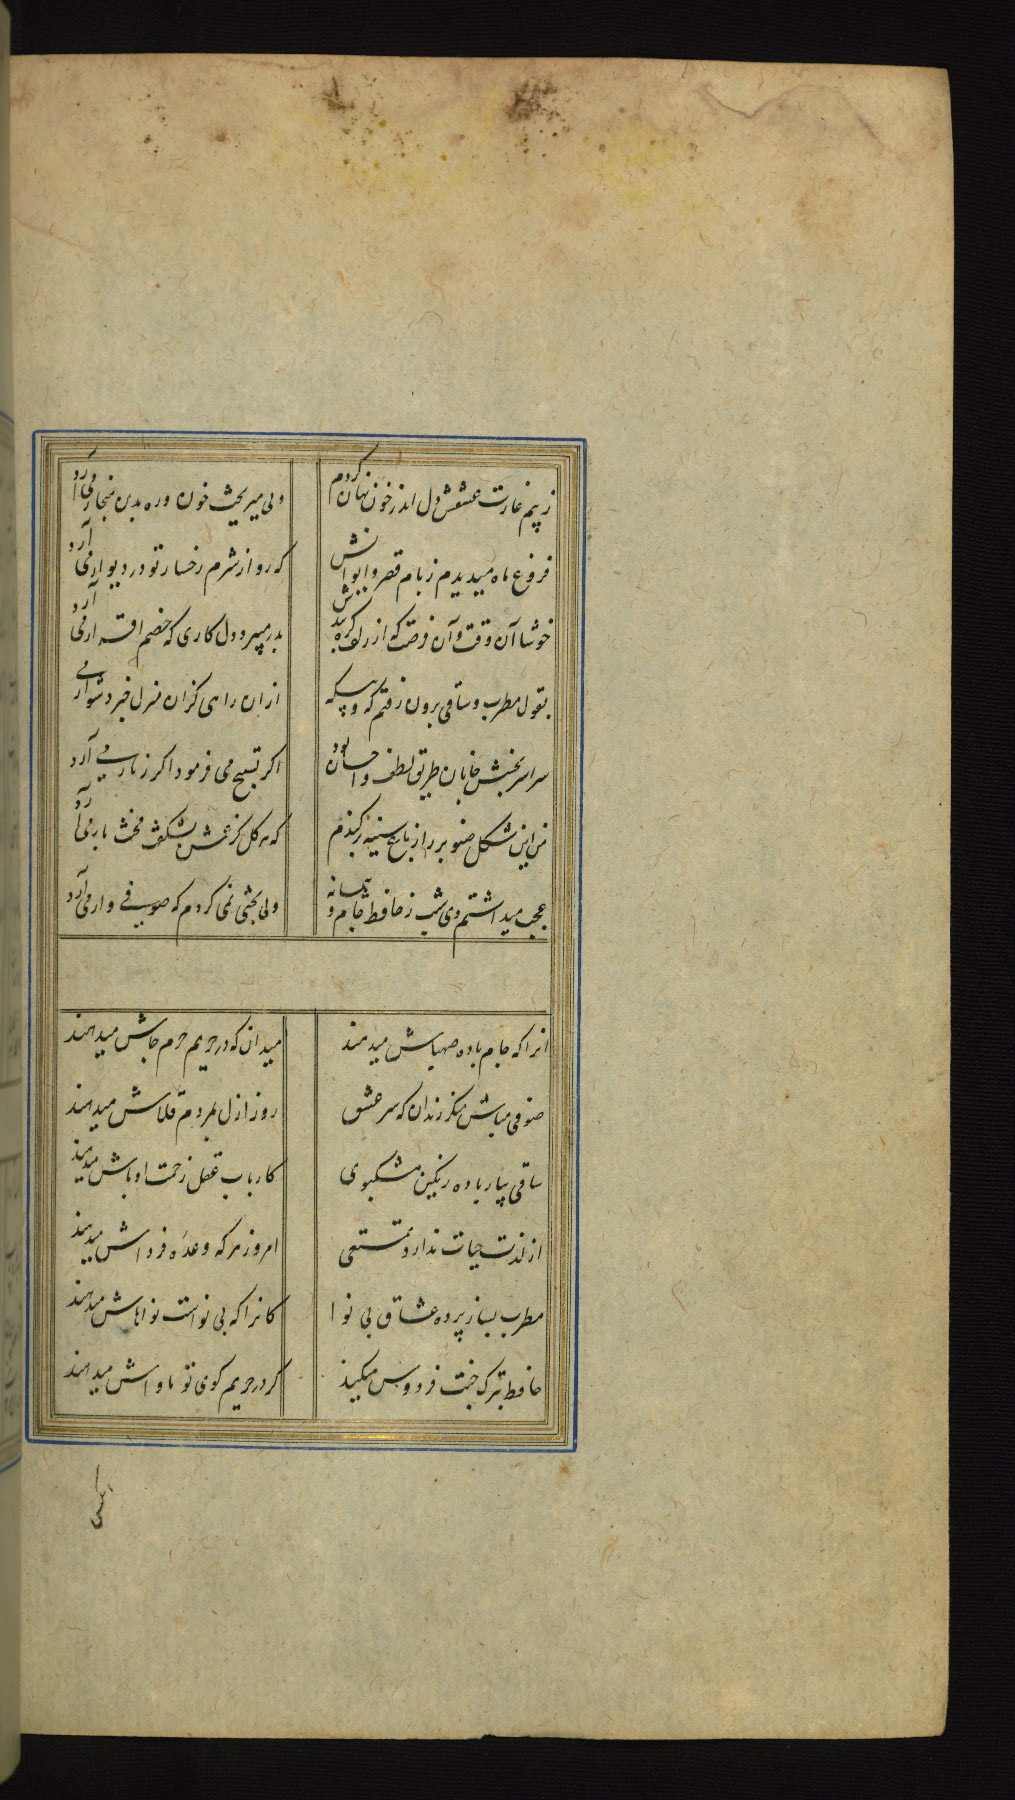 ز بیم غارت عشقش دل اندر خون نهان کردم
ولی میریخت خون و ره بدین هنجار می‌آرد
فروغ ماه میدیدم ز بام قصر و ایوانش
که رو از شرم رخسار تو در دیوار می‌آرد
خوشا آن وقت و آن فرصت که از زلف گره‌بندش
بدر میبرد دل کاری که خصم اقرار می‌آرد
بقول مطرب و ساقی برون رفتم که و بیکه
از ان راهی کزان منزل خبر دشوار می
سراسر بخشش جانان طریق لطف و احسان بود
اگر تسبیح می فرمود اگر زنار می آرد
من این شکل صنوبر را ز باغ سینه برکندم
که هر گل کز غمش بشکفت محنت بار می‌آرد
عجب میداشتم دی شب ز حافظ جام و پیمانه
ولی بحثی نمی کردم که صوفی وار می آرد
انرا که جام باده صهباش میدهند
میدان که در حریم حرم جاش میدهند
صوفی مباش منکر رندان که سر عشق
روز ازل بمردم قلاش میدهند
ساقی بیار باده رنگین مشکبوی
کارباب عقل زحمت اوباش میدهند
از لذت حیات ندارد تمتعی
امروز هر که وعده فرداش میدهند
مطرب بساز پرده عشاق بی نوا
کانرا که بی نواست نواهاش میدهند
حافظ بترک جنت فردوس میکند
گر در حریم کوی تو ماواش میدهند